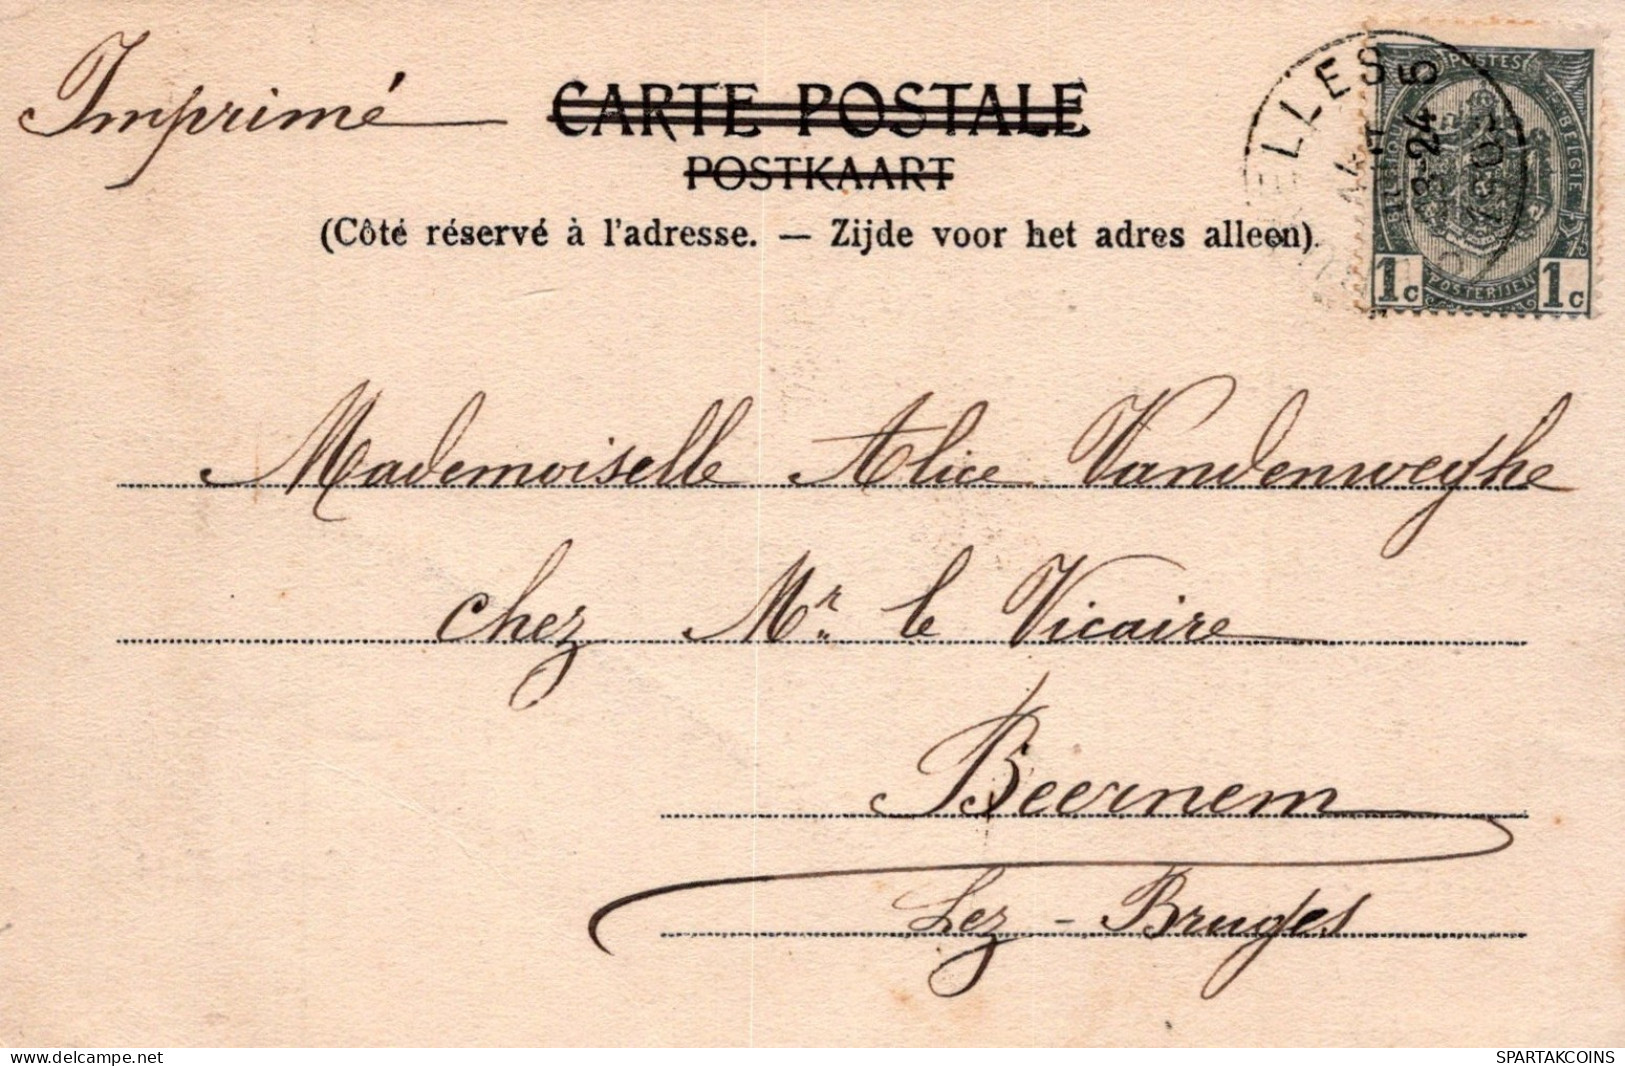 Imprimé
CARTE POSTALE
POSTKAART
(Côté réservé à l'adresse. — Zijde voor het adres alleen).
ELLES
24 5
POSTES
BELGIQUE
BELGIE
POSTERIJEN
1c 1c
Mademoiselle Alice Vandenweghe
chez Mr. le Vicaire
Beernem
Lez-Bruges
posted for sale on delcampe.net
SPARTAKCOINS